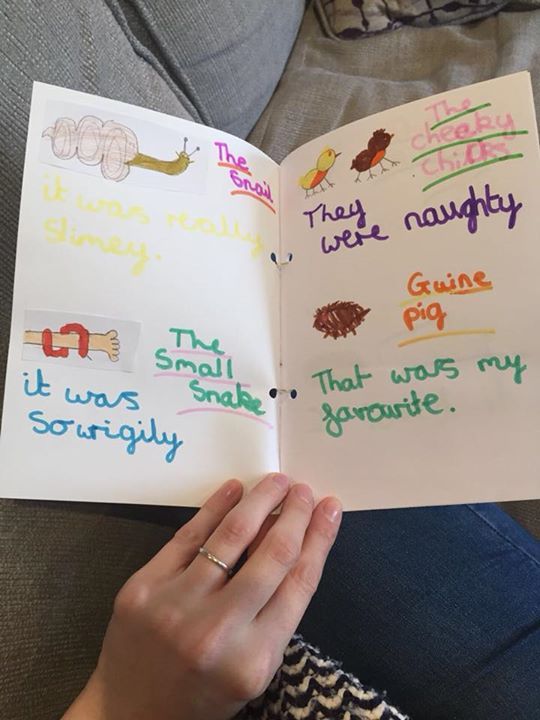 The
Snail
it was really
slimey.
The
Small
Snake
it was
So wrigily
The
cheeky
chicks
They
were naughty
Guine
pig
That was my
favouite.